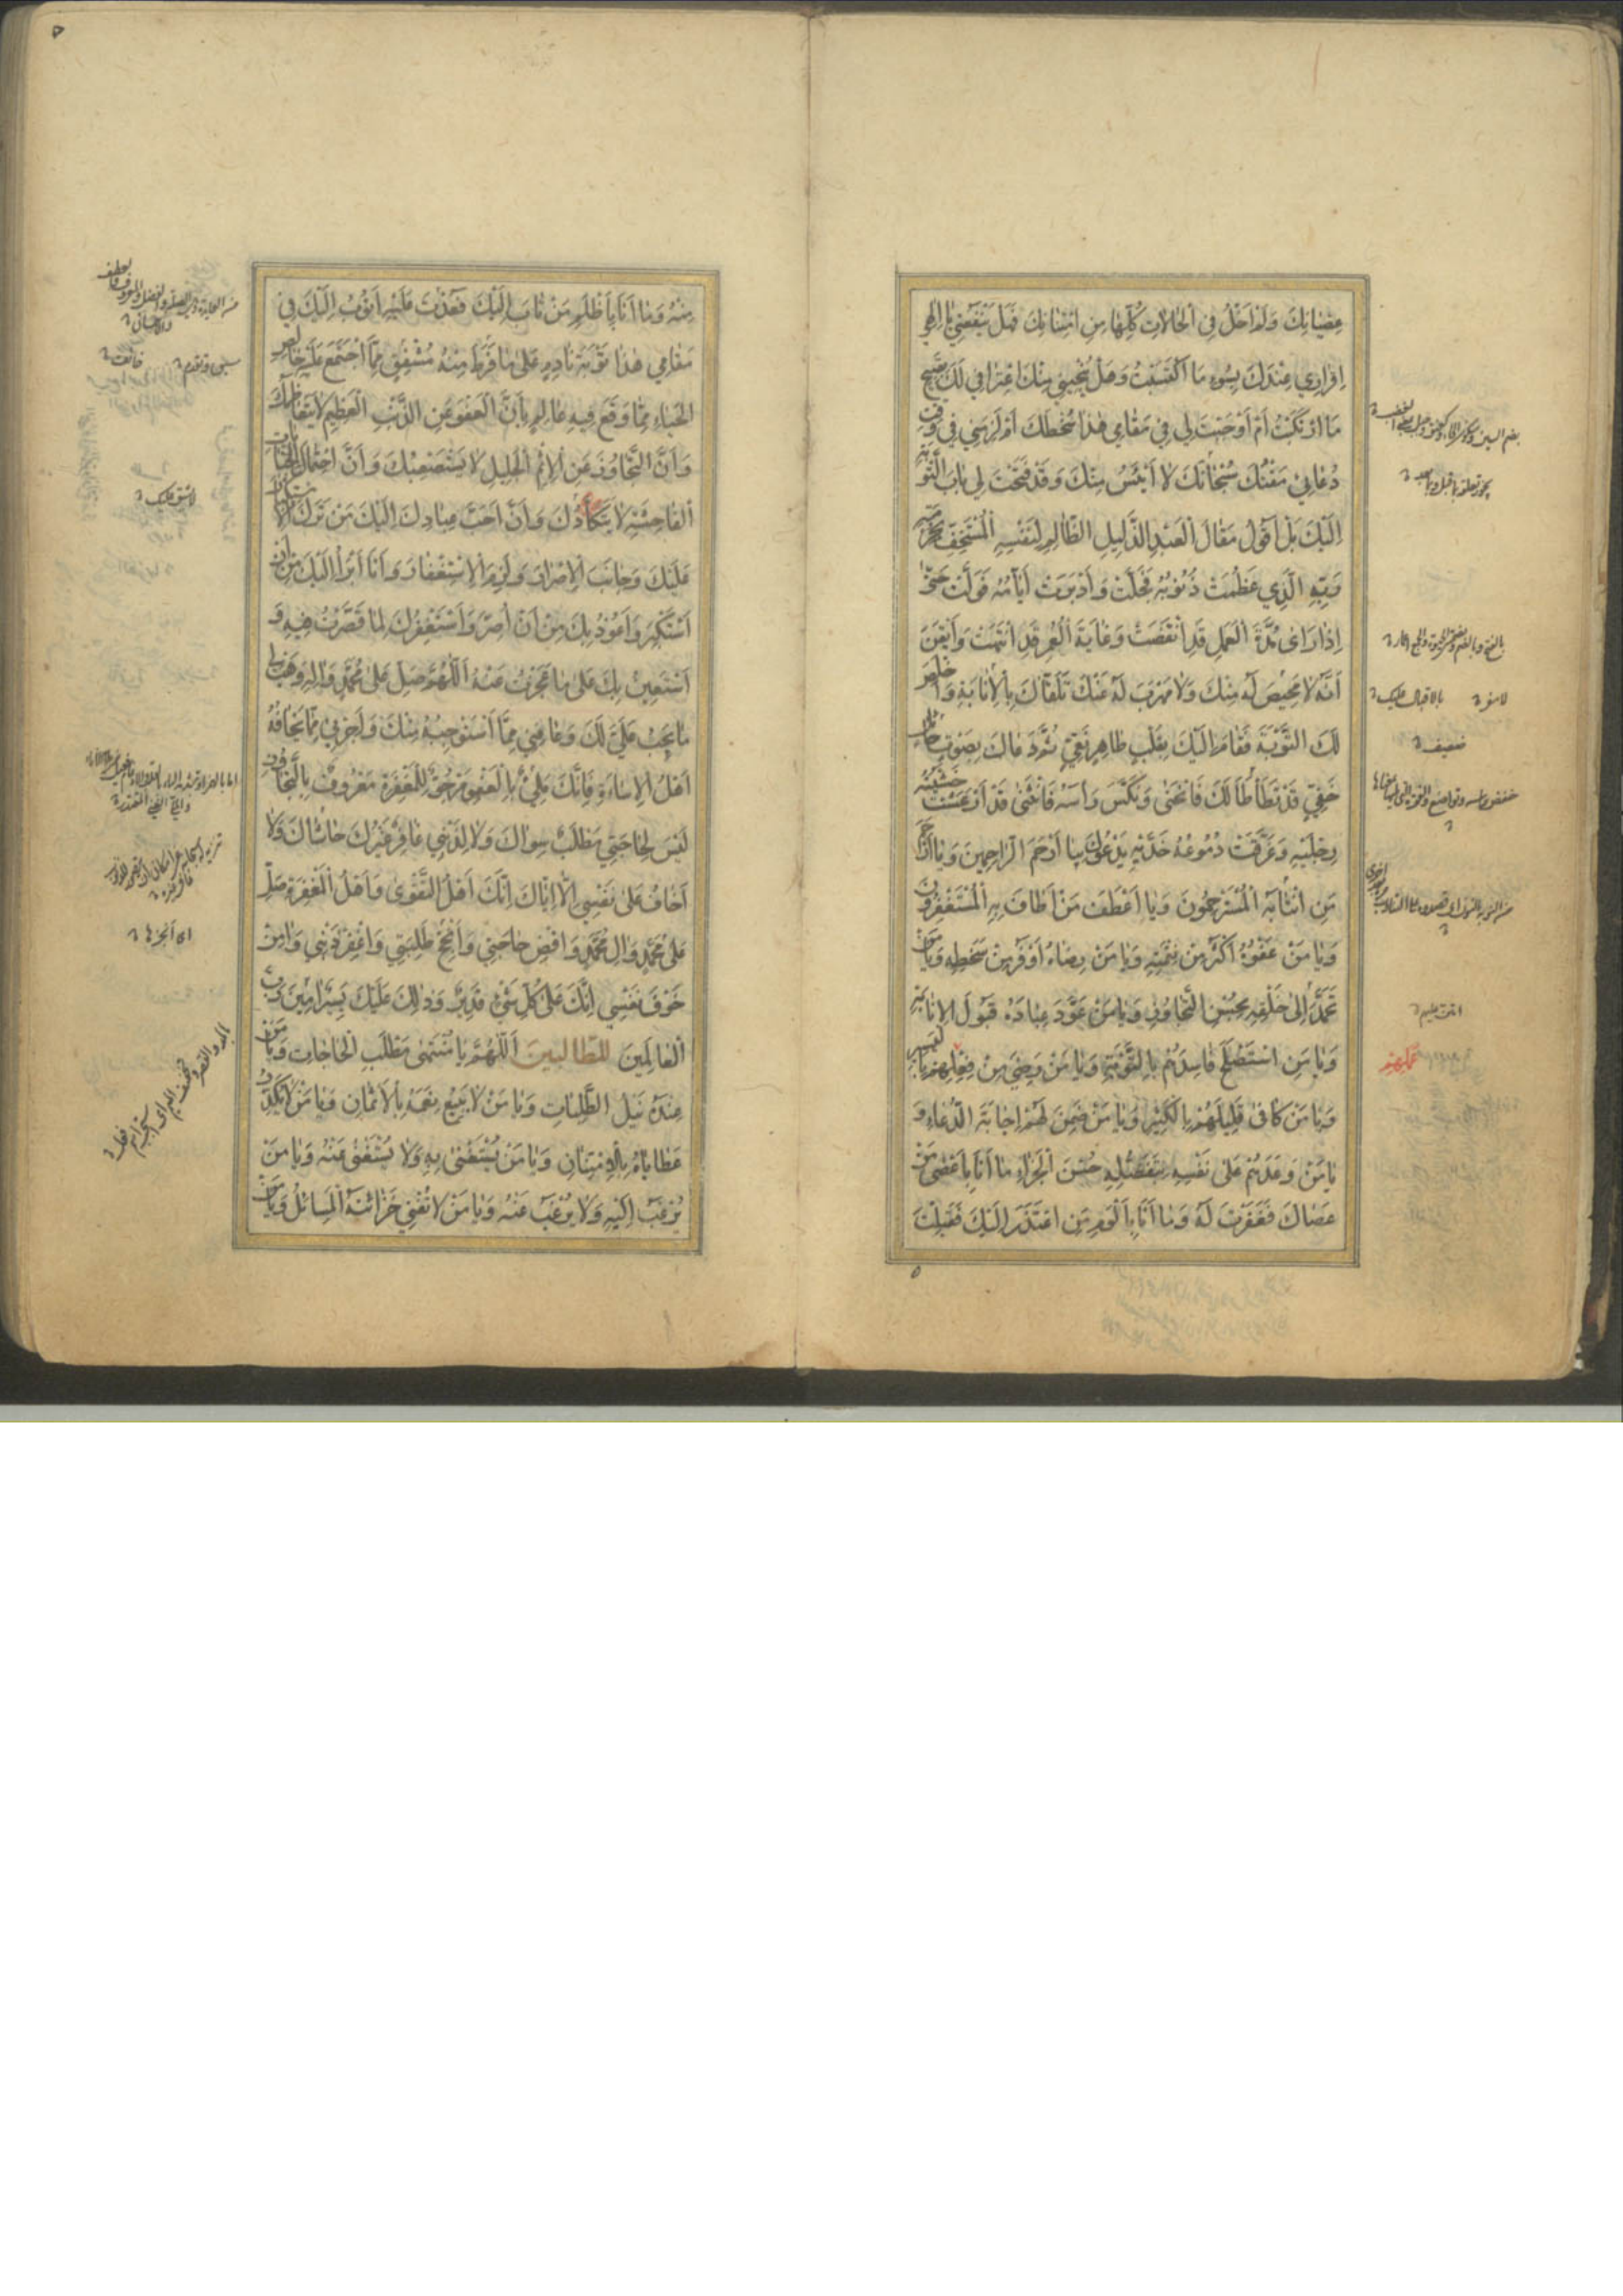 عِصْيَانِكَ وَلَمْ أَخْلُ فِي الْحَالَاتِ كُلِّهَا مِنِ امْتِنَانِكَ فَهَلْ يَنْفَعُنِي يَا إِلَهِي
إِقْرَارِي عِنْدَكَ بِسُوءِ مَا اكْتَسَبْتُ وَهَلْ يُنْجِينِي مِنْكَ اعْتِرَافِي لَكَ بِقَبِيحِ
مَا ارْتَكَبْتُ أَمْ أَوْجَبْتَ لِي فِي مَقَامِي هَذَا سُخْطَكَ أَمْ لَزِمَنِي فِي وَقْتِ
دُعَائِي مَقْتُكَ سُبْحَانَكَ لَا أَيْئَسُ مِنْكَ وَقَدْ فَتَحْتَ لِي بَابَ التَّوْبَةِ
إِلَيْكَ بَلْ أَقُولُ مَقَالَ الْعَبْدِ الذَّلِيلِ الظَّالِمِ لِنَفْسِهِ الْمُسْتَخِفِّ بِحُرْمَةِ
رَبِّهِ الَّذِي عَظُمَتْ ذُنُوبُهُ فَجَلَّتْ وَأَدْبَرَتْ أَيَّامُهُ فَوَلَّتْ حَتَّى
إِذَا رَأَى مُدَّةَ الْعَمَلِ قَدِ انْقَضَتْ وَغَايَةَ الْعُمُرِ قَدِ انْتَهَتْ وَأَيْقَنَ
أَنَّهُ لَا مَحِيصَ لَهُ مِنْكَ وَلَا مَهْرَبَ لَهُ عَنْكَ تَلَقَّاكَ بِالْإِنَابَةِ وَأَخْلَصَ
لَكَ التَّوْبَةَ فَقَامَ إِلَيْكَ بِقَلْبٍ طَاهِرٍ نَقِيٍّ ثُمَّ دَعَاكَ بِصَوْتٍ حَائِلٍ
خَفِيٍّ قَدْ تَطَأْطَأَ لَكَ فَانْحَنَى وَنَكَّسَ رَأْسَهُ فَانْثَنَى قَدْ أَرْعَشَتْ خَشْيَتُهُ
رِجْلَيْهِ وَغَرَّقَتْ دُمُوعُهُ خَدَّيْهِ يَدْعُوكَ بِيَا أَرْحَمَ الرَّاحِمِينَ وَيَا أَرْحَمَ
مَنِ انْتَابَهُ الْمُسْتَرْحِمُونَ وَيَا أَعْطَفَ مَنْ أَطَافَ بِهِ الْمُسْتَغْفِرُونَ
وَيَا مَنْ عَفْوُهُ أَكْثَرُ مِنْ نِقْمَتِهِ وَيَا مَنْ رِضَاهُ أَوْفَرُ مِنْ سَخَطِهِ وَيَا مَنْ
تَحَمَّدَ إِلَى خَلْقِهِ بِحُسْنِ التَّجَاوُزِ وَيَا مَنْ عَوَّدَ عِبَادَهُ قَبُولَ الْإِنَابَةِ
وَيَا مَنِ اسْتَصْلَحَ فَاسِدَهُمْ بِالتَّوْبَةِ وَيَا مَنْ رَضِيَ مِنْ فِعْلِهِمْ بِالْيَسِيرِ
وَيَا مَنْ كَافَى قَلِيلَهُمْ بِالْكَثِيرِ وَيَا مَنْ ضَمِنَ لَهُمْ إِجَابَةَ الدُّعَاءِ وَ
يَا مَنْ وَعَدَهُمْ عَلَى نَفْسِهِ بِتَفَضُّلِهِ حُسْنَ الْجَزَاءِ مَا أَنَا بِأَعْصَى مَنْ
عَصَاكَ فَغَفَرْتَ لَهُ وَمَا أَنَا بِأَلْوَمِ مَنِ اعْتَذَرَ إِلَيْكَ فَقَبِلْتَ
ضعيف
عملهم
۵
مِنْهُ وَمَا أَنَا بِأَظْلَمِ مَنْ تَابَ إِلَيْكَ فَعُدْتَ عَلَيْهِ أَتُوبُ إِلَيْكَ فِي
مَقَامِي هَذَا تَوْبَةَ نَادِمٍ عَلَى مَا فَرَطَ مِنْهُ مُشْفِقٍ مِمَّا اجْتَمَعَ عَلَيْهِ خَالِصِ
الْحَيَاءِ مِمَّا وَقَعَ فِيهِ عَالِمٍ بِأَنَّ الْعَفْوَ عَنِ الذَّنْبِ الْعَظِيمِ لَا يَتَعَاظَمُكَ
وَأَنَّ التَّجَاوُزَ عَنِ الْإِثْمِ الْجَلِيلِ لَا يَسْتَصْعِبُكَ وَأَنَّ احْتِمَالَ الْجِنَايَاتِ
الْفَاحِشَةِ لَا يَتَكَأَّدُكَ وَأَنَّ أَحَبَّ عِبَادِكَ إِلَيْكَ مَنْ تَرَكَ الِاسْتِكْبَارَ
عَلَيْكَ وَجَانَبَ الْإِصْرَارَ وَلَزِمَ الِاسْتِغْفَارَ وَأَنَا أَبْرَأُ إِلَيْكَ مِنْ أَنْ
أَسْتَكْبِرَ وَأَعُوذُ بِكَ مِنْ أَنْ أُصِرَّ وَأَسْتَغْفِرُكَ لِمَا قَصَّرْتُ فِيهِ وَ
أَسْتَعِينُ بِكَ عَلَى مَا عَجَزْتُ عَنْهُ اللَّهُمَّ صَلِّ عَلَى مُحَمَّدٍ وَآلِهِ وَهَبْ لِي
مَا يَجِبُ عَلَيَّ لَكَ وَعَافِنِي مِمَّا أَسْتَوْجِبُهُ مِنْكَ وَأَجِرْنِي مِمَّا يَخَافُهُ
أَهْلُ الْإِسَاءَةِ فَإِنَّكَ مَلِيءٌ بِالْعَفْوِ مَرْجُوٌّ لِلْمَغْفِرَةِ مَعْرُوفٌ بِالتَّجَاوُزِ
لَيْسَ لِحَاجَتِي مَطْلَبٌ سِوَاكَ وَلَا لِذَنْبِي غَافِرٌ غَيْرُكَ حَاشَاكَ وَلَا
أَخَافُ عَلَى نَفْسِي إِلَّا إِيَّاكَ إِنَّكَ أَهْلُ التَّقْوَى وَأَهْلُ الْمَغْفِرَةِ صَلِّ
عَلَى مُحَمَّدٍ وَآلِ مُحَمَّدٍ وَاقْضِ حَاجَتِي وَأَنْجِحْ طَلِبَتِي وَاغْفِرْ ذَنْبِي وَآمِنْ
خَوْفَ نَفْسِي إِنَّكَ عَلَى كُلِّ شَيْءٍ قَدِيرٌ وَذَلِكَ عَلَيْكَ يَسِيرٌ آمِينَ رَبَّ
الْعَالَمِينَ اللَّهُمَّ يَا مُنْتَهَى مَطْلَبِ الْحَاجَاتِ وَيَا مَنْ
عِنْدَهُ نَيْلُ الطَّلِبَاتِ وَيَا مَنْ لَا يَبِيعُ نِعَمَهُ بِالْأَثْمَانِ وَيَا مَنْ لَا يُكَدِّرُ
عَطَايَاهُ بِالِامْتِنَانِ وَيَا مَنْ يُسْتَغْنَى بِهِ وَلَا يُسْتَغْنَى عَنْهُ وَيَا مَنْ
يُرْغَبُ إِلَيْهِ وَلَا يُرْغَبُ عَنْهُ وَيَا مَنْ لَا تُفْنِي خَزَائِنَهُ الْمَسَائِلُ وَيَا مَنْ